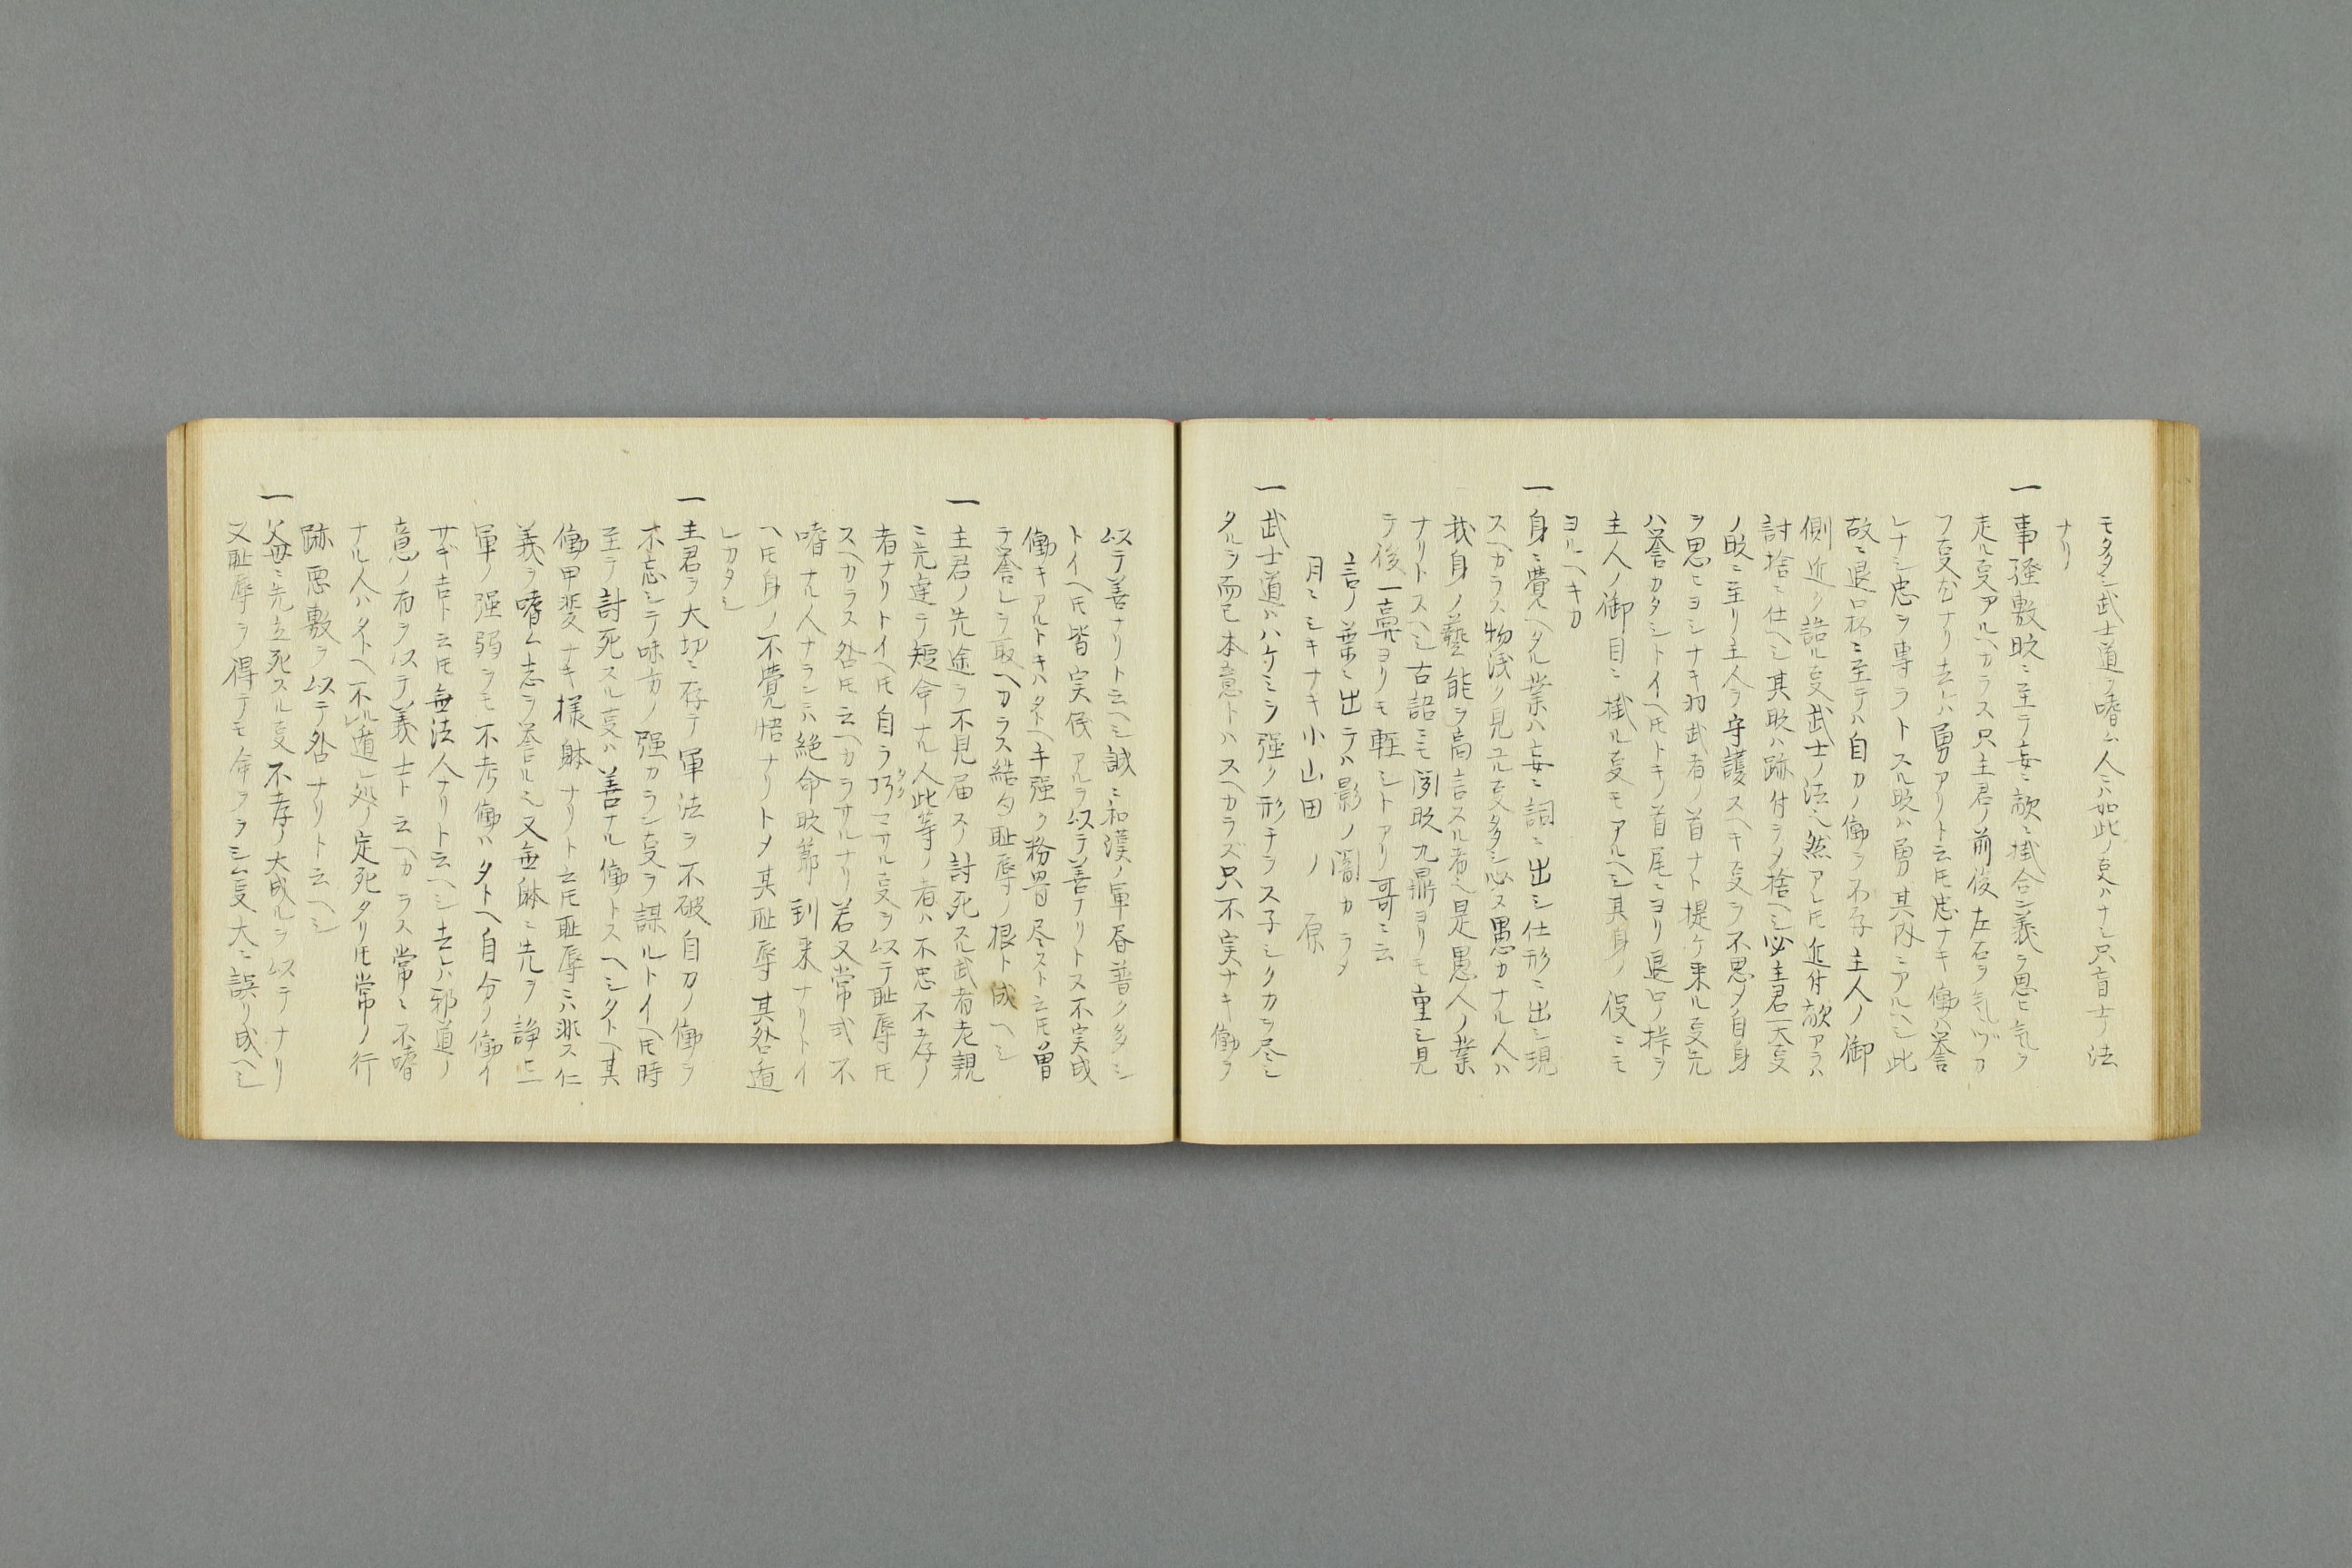 モ多シ武士道ヲ嗜ム人ニハ如此ノ叓ハナシ只盲士ノ法
ナリ
一事騒敷時ニ至テ妄ニ敵ニ掛合シ義ヲ思ヒ気ヲ
走ル叓アルヘカラス只主君ノ前後左右ヲ気ヅカ
フ叓ナリ去ハ勇アリト云トモ忠ナキ働ハ誉
レナシ忠ヲ専ラトスル時ハ勇其内ニアルヘシ此
故ニ退口ニ至テハ自力ノ働ヲ不存主人ノ御
側近ク詰ル叓武士ノ法也然アレトモ近付敵アラハ
討捨ニ仕ヘシ其時ハ跡付ヲメ捨ヘシ必主君一大叓
ノ時ニ至リ主人ヲ守護スヘキ叓ヲ不思メ自身
ヲ思ヒヨシナキ羽武者ノ首ナト提ケ来ル叓先
ハ誉カタシトイヘトモトキノ首尾ニヨリ退口ノ様ヲ
主人ノ御目ニ掛ル叓モアルヘシ其身ノ役ニモ
ヨルヘキカ
一身ニ覚ヘタル業ハ妄ニ詞ニ出シ仕形ニ出シ現
スヘカラス物浅ク見ユル叓多シ必ス愚カナル人ハ
我身ノ藝能ヲ高言スル者也是愚人ノ業
ナリトスヘシ古語ニモ聞時九鼎ヨリモ重シ見
テ後一毫ヨリモ軽シトアリ哥ニ云
言ノ葉ニ出テハ影ノ闇カラメ
月ニシキナキ小山田ノ原
一武士道ハハケミヲ強ク形チヲス子シクカヲ尽シ
タルヲ而已本意トハスヘカラズ只不実ナキ働ヲ
以テ善ナリト云ヘシ誠ニ和漢ノ軍昏普ク多シ
トイヘトモ皆実役アルヲ以テ善ナリトス不実成
働キアルトキハタトヘキ強ク粉骨尽ストモ云トモ曽
テ誉レヲ取ヘカラス結句恥辱ノ根ト成ヘシ
一主君ノ先途ヲ不見届スノ討死スル武者老親
ニ先達テ短命ナル人此等ノ者ハ不忠不孝ノ
者ナリトイヘトモ自ラ巧マサル叓ヲ以テ恥辱トモ
スヘカラス咎トモ云ヘカラサルナリ若又常式不
嗜ナル人ナランハ絶命時節到来ナリトイ
ヘトモ身ノ不覚悟ナリトメ其恥辱其咎遁
レカタシ
一主君ヲ大切ニ存テ軍法ヲ不破自力ノ働ヲ
不忘シテ味方ノ強カラン叓ヲ謀ルトイヘトモ時
至テ討死スル叓ハ善ナル働トスヘシタトヘ其
働甲斐ナキ様躰ナリト云トモ恥辱ニハ非ス仁
義ヲ嗜ム志ヲ誉ル也又無躰ニ先ヲ諍ヒ
軍ノ強弱ヲモ不考働ハタトヘ自分ノ働イ
サギ吉ト云トモ無法人ナリト云ヘシ去ハ邪道ノ
意ノ有ヲ以テ義士ト云ヘカラス常ニ不嗜
ナル人ハタトヘ不遁処ノ定死タリトモ常ノ行
跡悪敷ヲ以テ咎ナリト云ヘシ
一父母ニ先立死スル叓不孝ノ大成ルヲ以テナリ
又恥辱ヲ得テモ命ヲヲシム叓大ニ誤リ成ヘシ